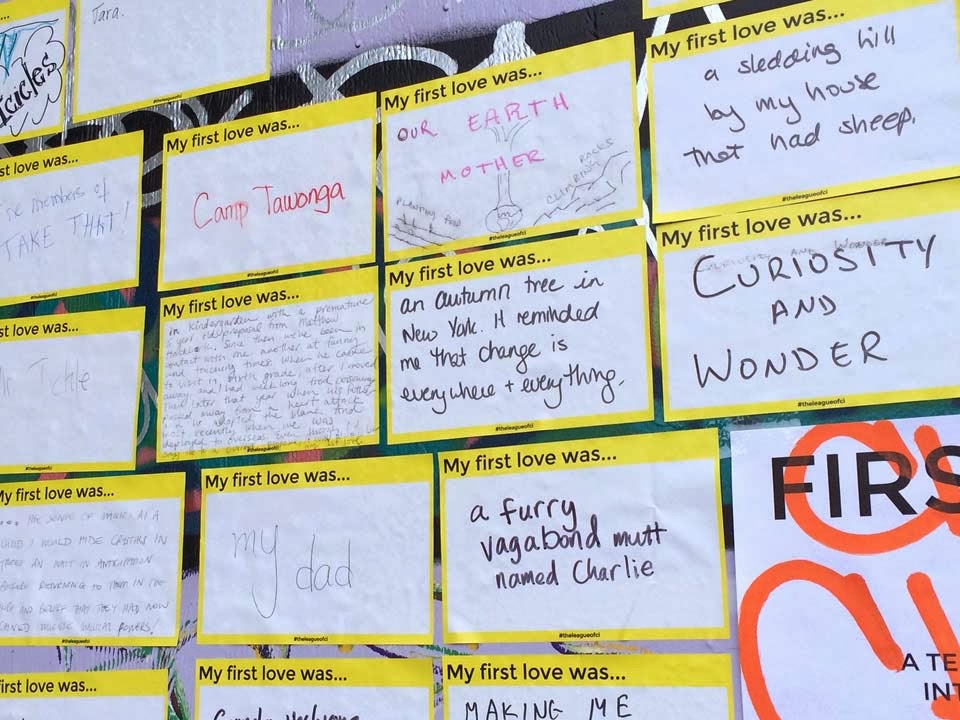 Tara.
Icicles
My first love was...
a sledding hill
by my house
that had sheep.
#theleagueofci
st love was...
members of
TAKE THAT!
#theleagueofci
My first love was...
Camp Tawonga
#theleagueofci
My first love was...
OUR EARTH
MOTHER
CLIMBING ROCKS
#theleagueofci
My first love was...
CURIOSITY AND WONDER
CURIOSITY
AND
WONDER
#theleagueofci
st love was...
Tickle
#theleagueofci
My first love was...
in Kindergarden with a premature
5 year old proposal from Matthew
Since then we've been in
contact with one another at funny
and touching times when he came
to visit in sixth grade, after I moved
away, and had week long food poisoning
Then later that year when his father
passed away from a heart attack
the plane. And
most recently when he was
deployed to overseas
#theleagueofci
My first love was...
an autumn tree in
New York. It reminded
me that change is
everywhere + everything.
#theleagueofci
My first love was...
THE SENSE OF MAGIC. AS A
CHILD I WOULD HIDE CRYSTALS IN
TREES AN WAIT IN ANTICIPATION
BEFORE RETURNING TO THEM IN THE
AND BELIEF THAT THEY HAD NOW
MAGICAL POWERS!
#theleagueofci
My first love was...
my dad
#theleagueofci
My first love was...
a furry
vagabond mutt
named Charlie
#theleagueofci
FIRS
A TE
INT
first love was...
My first love was...
My first love was...
MAKING ME